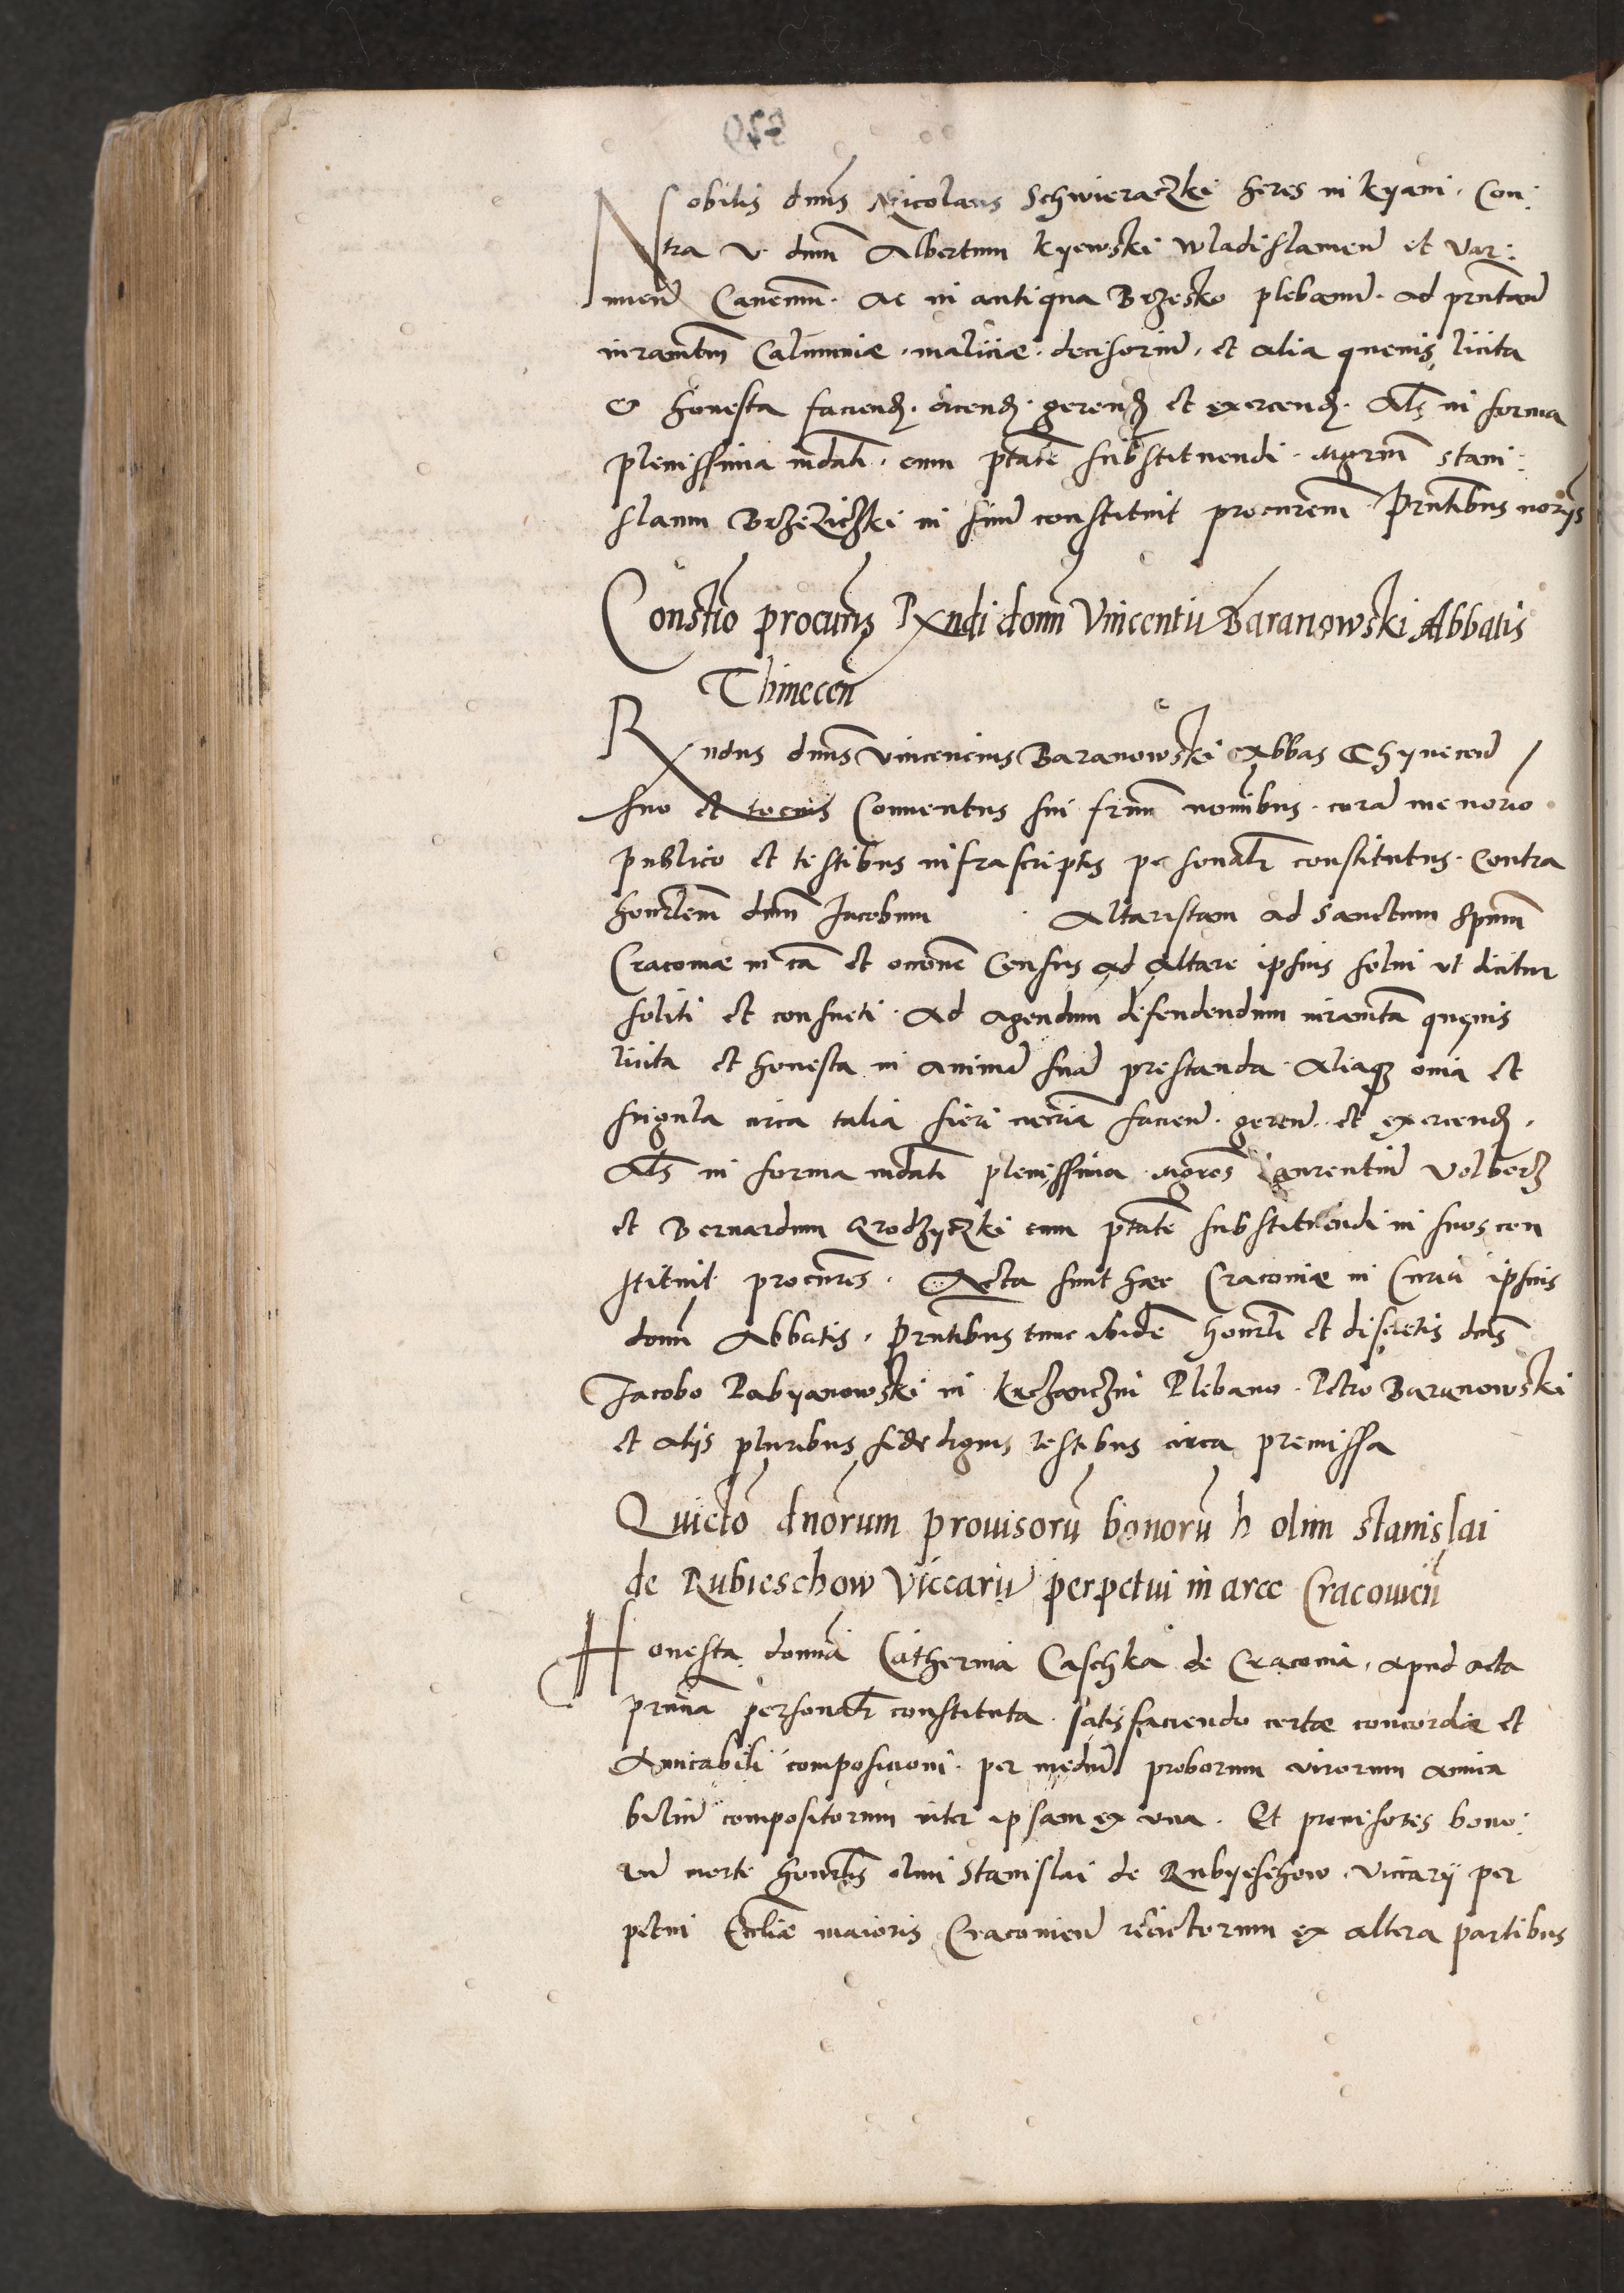 Nobilis dnus Nicolaus Schwieraczki heres in kyani. Con:
tra v. dnm Albertum kyewski wladislauien et var:
mien Canonicum. Ac in antiqua Brzesko plebanum. ad prestand
iuramtm Calumniæ. maliciæ. decisorium. et alia queuis licita
& honesta faciend. dicend. gerend et exercend. Als in forma
plenissima mdati. cum ptate substituendi. Mgrum stani:
slaum Brzeziczki in suum constituit procurem. Prntibus noriis
Constio procuris Rxndi domi Vincentii Baranowski Abbatis
Thinecen
Rxndus dnus vincencius Baranowski Abbas Thynecen
suo et tocius Conuentus sui frum nomibus. coram me norio
publico et testibus infrascriptis personalr constitutus. Contra
honorlem dnm Jacobum . Altaristam ad Sanctum Spum
Cracouiæ in ca et occone Census ad Altare ipsius solui ut dicitur
soliti et consueti. Ad agendum defendendum iuramta queuis
licita et honesta in animam suam prestanda. Aliaq omia et
singula circa talia fieri necria facien. geren. et exercend.
Als in forma mdati plenissima. Mgros Laurentium Volberz
et Bernardum Grodzyczki cum ptate substituendi in suos con
stituit procures. Acta sunt hæc Cracouiæ in Curia ipsius
domi Abbatis. Prntibus tunc ibidem honorli et discretis dnis
Jacobo Pabyanowski in krczanczini Plebano. Petro Baranowski
et aliis pluribus fide dignis testibus circa premissa
Quietio dnorum prouisorum bonorum h olim stanislai
de Rubieschow Viccarii perpetui in arce Cracouien
Honesta domina Catherina Caschka de Cracouia. apud acta
prntia personalr constituta. satisfaciendo certæ concordiæ et
Amicabili composicioni. per medium proborum virorum amica
bilium compositorum inter ipsam ex vna. Et prouisores bono:
rum morte honorlis olim Stanislai de Rubyeschow viccarii per
petui Ecclie maioris Cracouien relictorum ex altera partibus